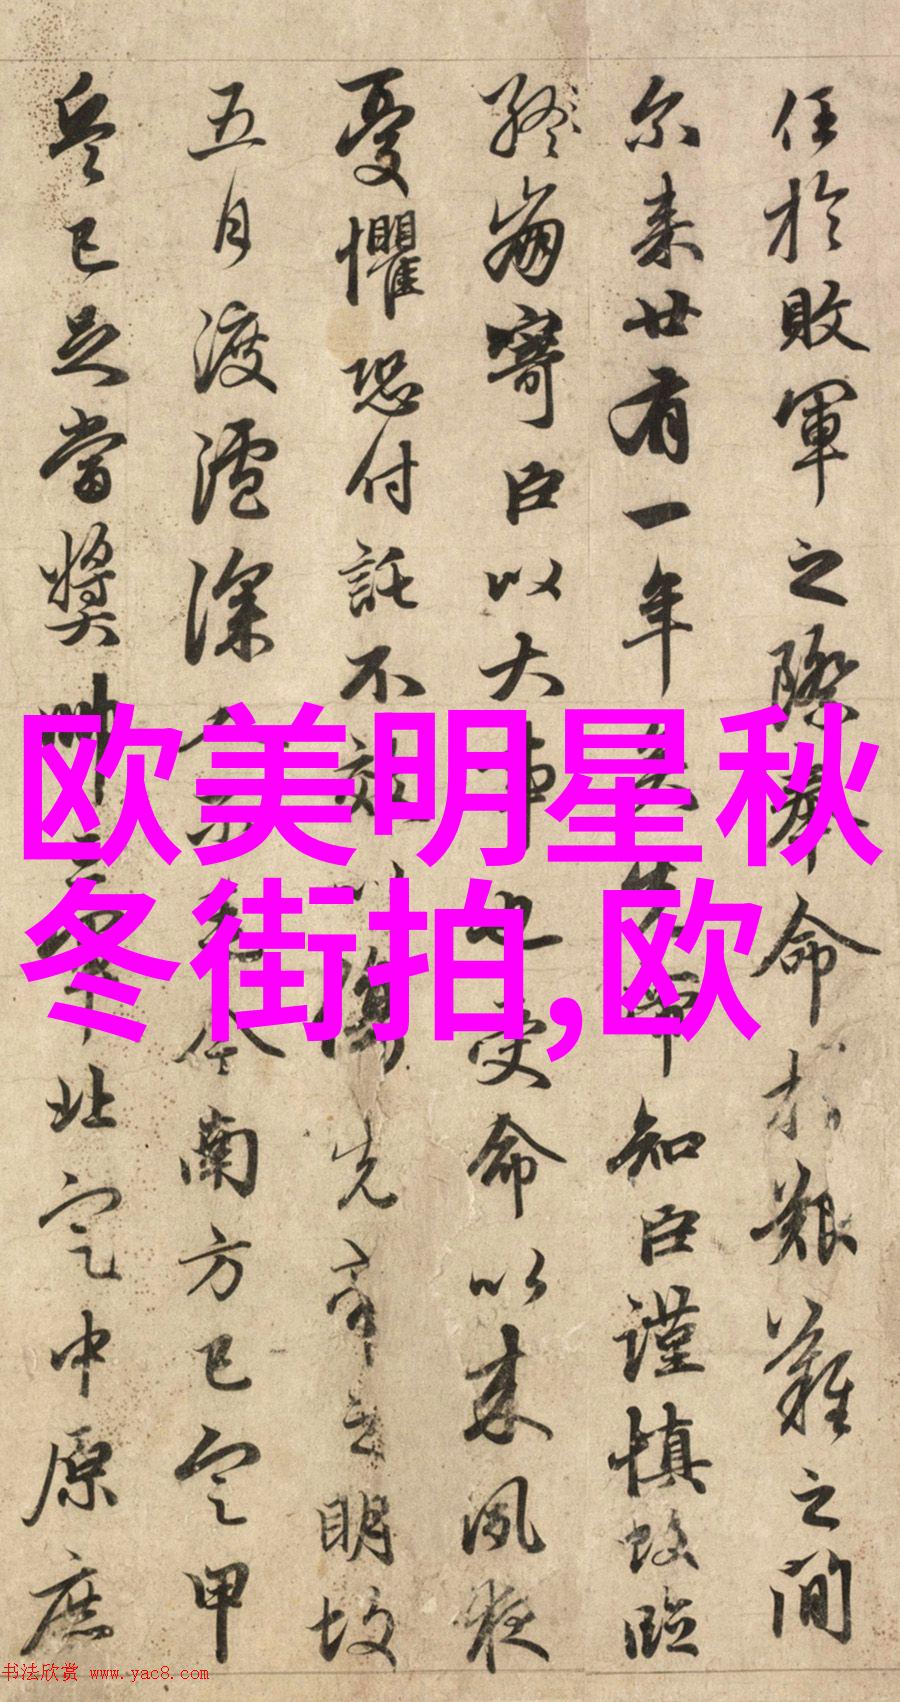 任於敗軍之際奉命於艱難之間
尔来廿有一年矣先帝知臣謹慎故臨
終崩寄臣以大事也受命以来夙夜
憂懼恐付託不效以傷先帝之明故
五月渡瀘深入不毛今南方已定甲
兵已足當奬帥三軍北定中原庶
欧美明星秋
冬街拍,欧
书法欣赏 www.yac8.com